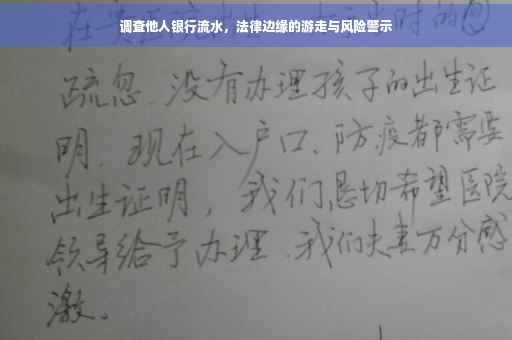 调查他人银行流水，法律边缘的游走与风险警示
疏忽、没有办理孩子的出生证
明、现在入户口、防疫都需要
出生证明，我们恳切希望医院
领导给予办理、我们夫妻万分感
激。